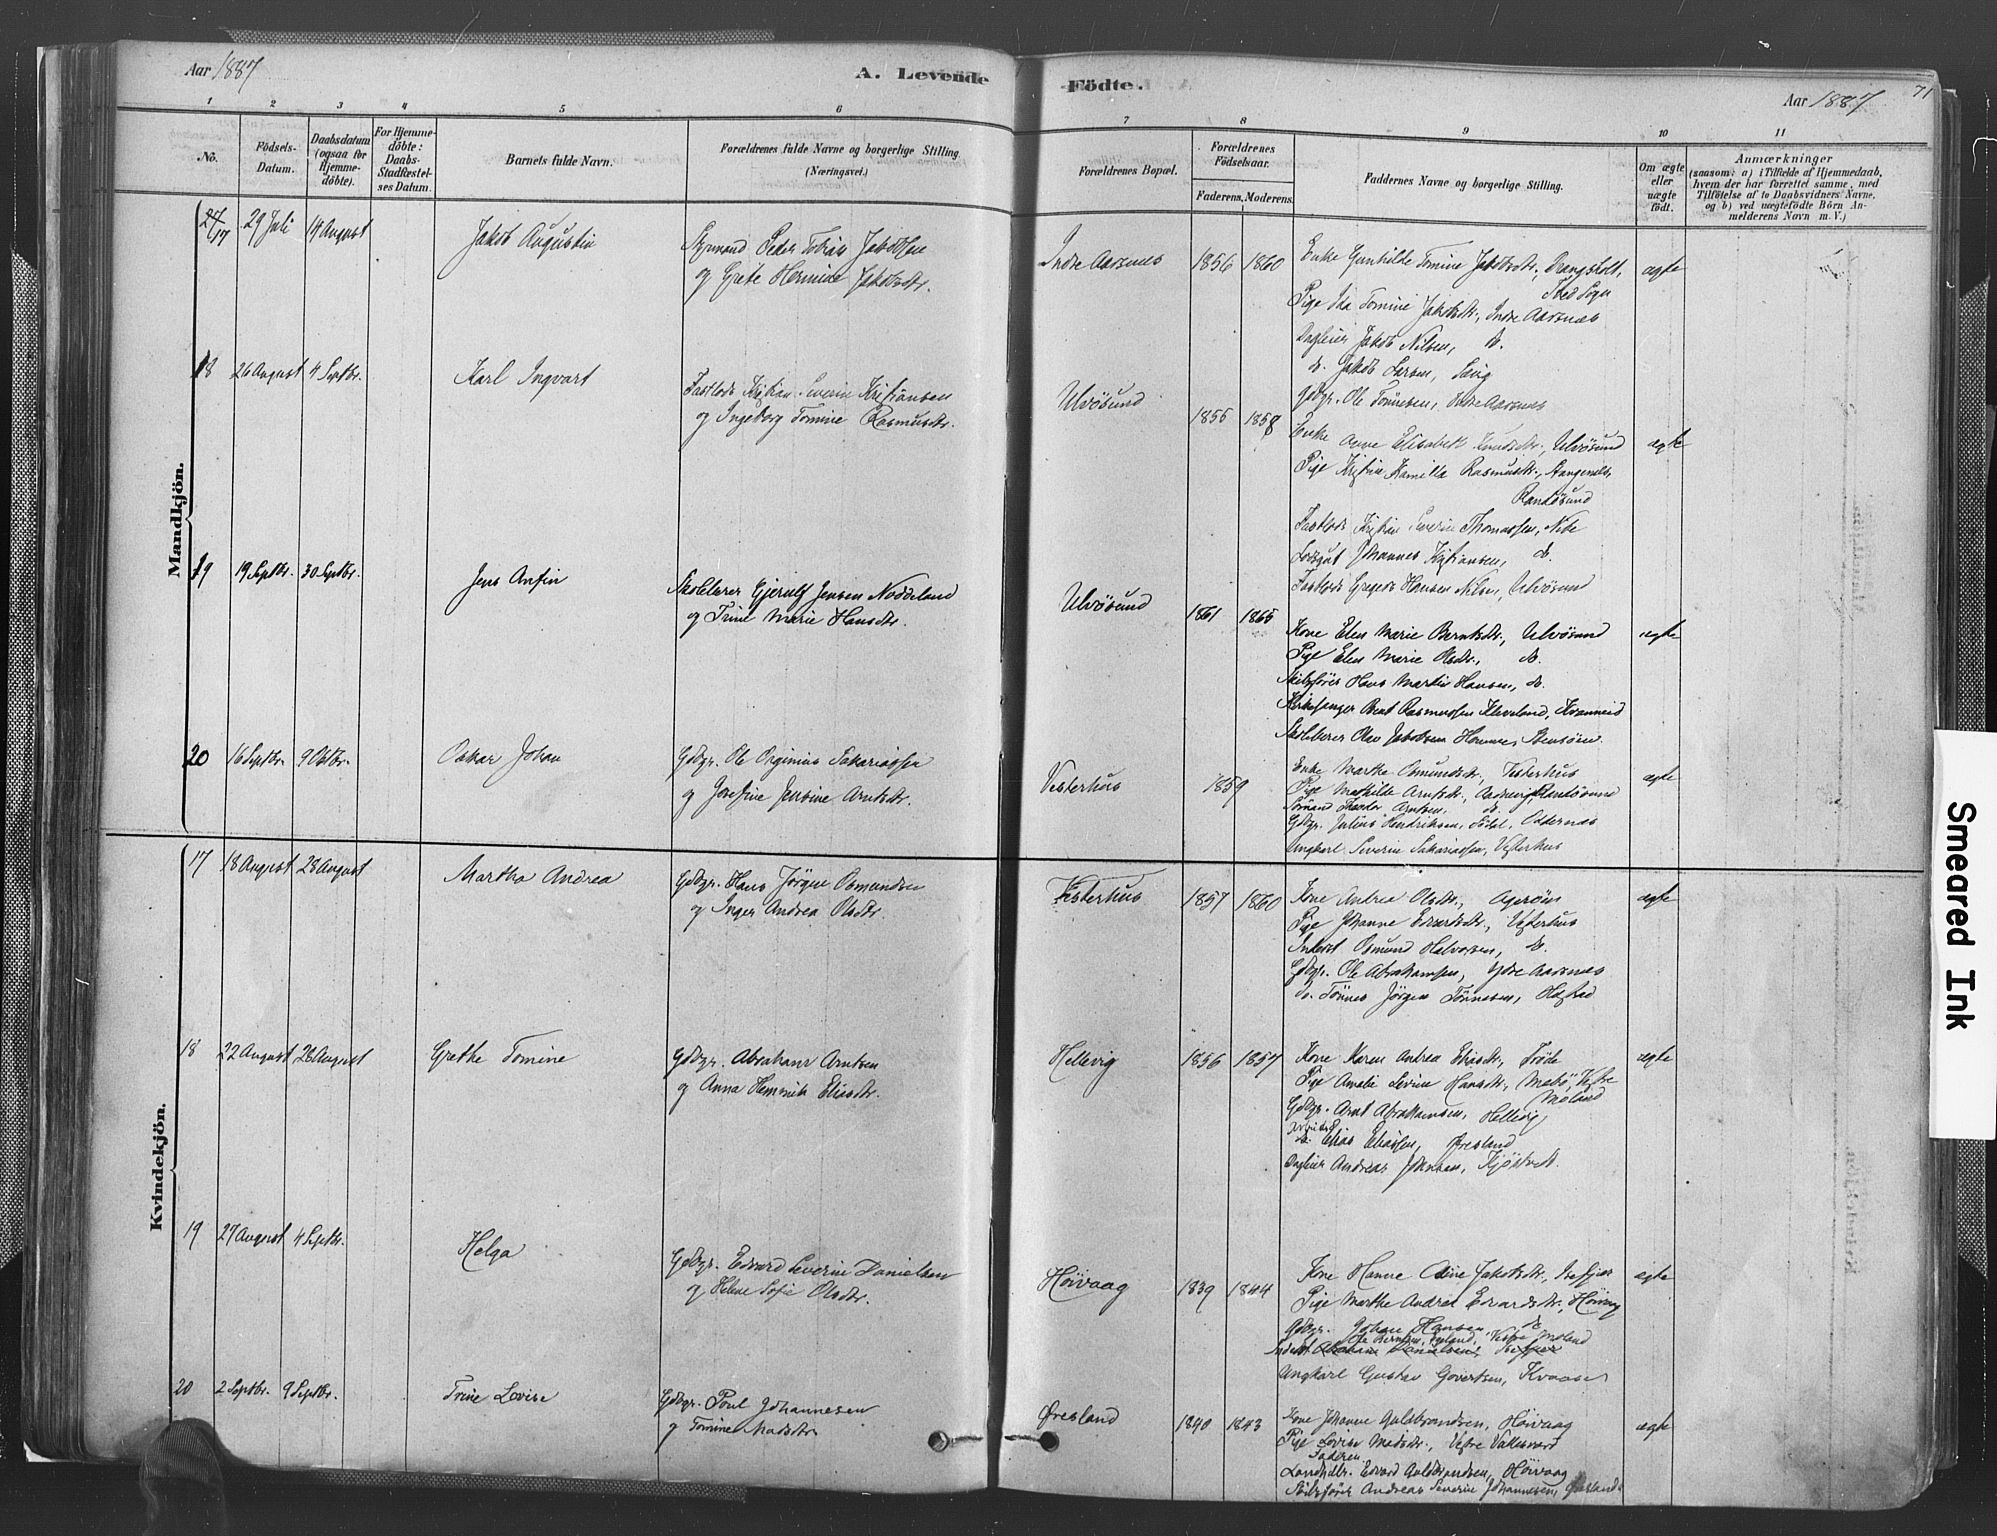 Aar 1887
A. Levende
Födte.
Aar 1887
71
1 2 3 4 5 6 7 8 9 10 11
No.
Födsels-
Datum.
Daabsdatum
(ogsaa for
Hjemme-
döbte).
For Hjemme-
döbte:
Daabs-
Stadfæstel-
ses Datum.
Barnets fulde Navn.
Forældrenes fulde Navne og borgerlige Stilling
(Næringsvei.)
Forældrenes Bopæl.
Forældrenes
Födselsaar.
Faderens. Moderens.
Faddernes Navne og borgerlige Stilling.
Om ægte
eller
uægte
födt.
Anmærkninger
(saasom: a) i Tilfælde af Hjemmedaab,
hvem der har forrettet samme, med
Tilföielse af to Daabsvidners Navne,
og b) ved uægtefödte Börn An-
melderens Navn m. V.)
Mandkjön.
17 29 Juli 14 August Jakob Augustin
Styrmand Peder Tobias Jakobsen
og Grete Hermine Jakobsdtr.
Indre Aarsnes 1856 1860
Enke Gunhilde Tomine Jakobsdtr., Drangsholt, ægte
Tved Sogn
Pige Ida Tomine Jakobsdtr., Indre Aarsnes
Jakob Nilsen, do.
do. Jakob Larsen,
Gdbgr. Ole Tønnesen, Indre Aarsnes
18 26 August 4 Septbr. Karl Ingvart
Fastlods Kristian Severin Kristiansen
og Ingeborg Tomine Rasmusdtr.
Ulvøsund 1855 1858
Enke Anne Elisabet Knudsdtr., Ulvøsund ægte
Pige Kristine Kamilla Rasmusdtr., Stangenes,
Randøsund
Fastlods Kristian Severin Thomassen,
Lodsgut Johannes Kristiansen, do.
Fastlods Gregers Hansen Nilsen, Ulvøsund
19 19 Septbr. 30 Septbr. Jens Anfin
Skolelærer Gjerulf Jensen Noddeland
og Trine Marie Hansdtr.
Ulvøsund 1861 1865
Kone Elen Marie Berntsdtr., Ulvøsund ægte
Pige Elen Marie Olsdtr., do.
Skibsfører Hans Martin Hansen, do.
Kirkesanger Bent Rasmussen Kleveland, Kvanneid
Skolelærer Olav Jakobsen Homme, Stensøen.
20 16 Septbr. 9 Oktbr. Oskar Johan
Gdbgr. Ole Orginius Sakariassen
og Josefine Jensine Arntsdtr.
Vesterhus 1859
Enke Marthe Osmundsdtr., Vesterhus ægte
Pige Mathilde Arntsdtr., Randøsund
Sømand Theodor Arntsen, do.
Gdbgr. Julius Hendriksen, Oddernes
Ungkarl Severin Sakariassen, Vesterhus
Kvindekjön.
17 18 August 28 August Martha Andrea
Gdbgr. Hans Jørgen Osmundsen
og Inger Andrea Olsdtr.
Vesterhus 1857 1860
Kone Andrea Olsdtr., Agerøen ægte
Pige Johanne Edvardsdtr., Vesterhus
Inderst Osmund Halvorsen, do.
Gdbgr. Ole Abrahamsen, Ydre Aarsnes
do. Tønnes Jørgen Tønnesen, Hæstad
18 22 August 28 August Grethe Tomine
Gdbgr. Abraham Arntsen
og Anna Hemmik Eliasdtr.
Hellevig 1856 1857
Kone Karen Andrea Eliasdtr., Trøde ægte
Pige Amalie Levine Hansdtr., Mebø, Vestre
Moland
Gdbgr. Arnt Abrahamsen, Hellevig
Elias Eliassen, Øresland
Andreas Johnsen,
19 27 August 4 Septbr. Helga
Gdbgr. Edvard Severin Danielsen
og Helene Sofie Olsdtr.
Høivaag 1839 1844
Kone Hanne Oline Jakobsdtr., Isefjær ægte
Pige Marthe Andrea Edvardsdtr., Høivaag
Gdbgr. Johan Hansen do.
Ole Berntsen, Vestre Moland
Inderst Abraham Danielsen, Isefjær
Ungkarl Gustav Govertsen, Kvaase
20 2 Septbr. 9 Septbr. Trine Lovise
Gdbgr. Poul Johannesen
og Tomine Madsdtr.
Øresland 1840 1843
Kone Johanne Guldbrandsen, Høivaag ægte
Pige Lovise Madsdtr., Vestre Vallesværd
Faderen
Landhdlr. Edvard Guldbrandsen, Høivaag
Skibsfører Andreas Severin Johannesen, Øresland
Smeared Ink